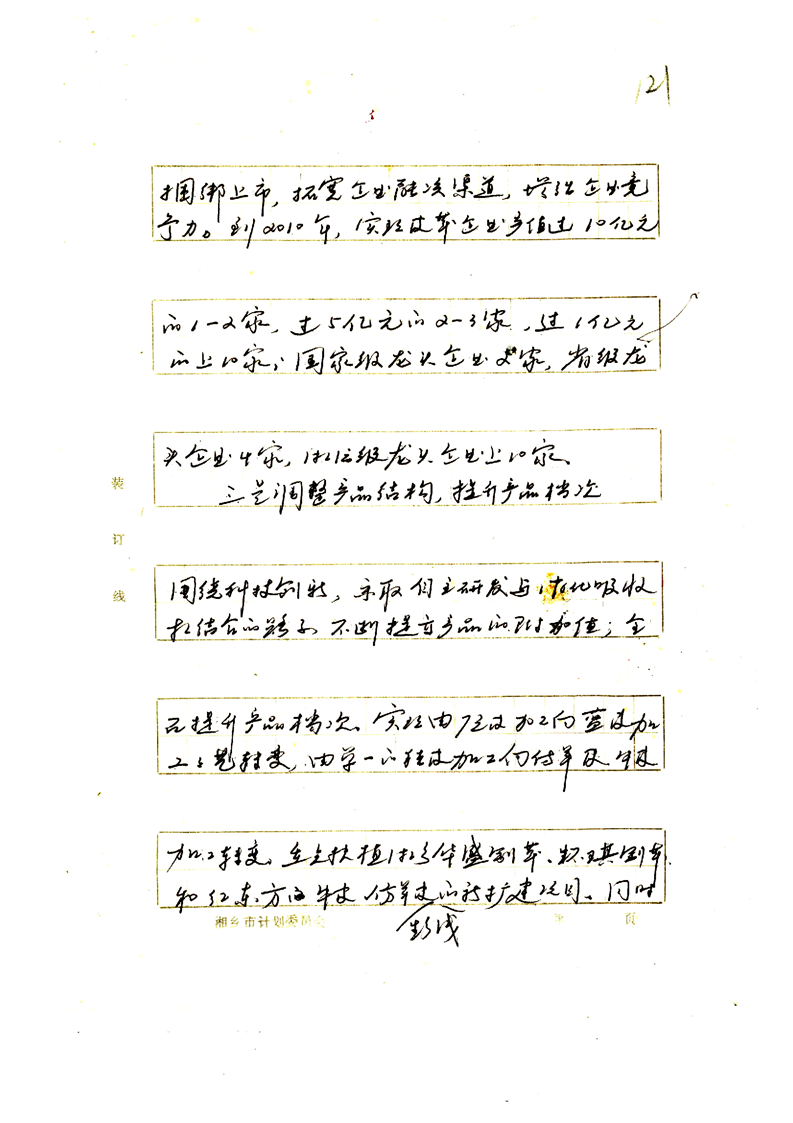 121
捆绑上市，拓宽企业融资渠道，增强企业竞
争力。到2010年，实现皮革企业产值过10亿元
的1-2家，过5亿元的2-3家，过1亿元
的上10家；国家级龙头企业2家，省级龙
头企业4家，湘潭级龙头企业上10家。
三是调整产品结构，提升产品档次
围绕科技创新，采取自主研发与消化吸收
相结合的路子，不断提高产品的附加值；全
面提升产品档次。实现由原皮加工向蓝皮加
工转变，由单一的猪皮加工向仿羊及牛皮
加工转变。重点扶植华盛制革、制革
和红东方的牛皮、仿羊皮的新扩建项目。同时
装
订
线
湘乡市计划委员会
第 页